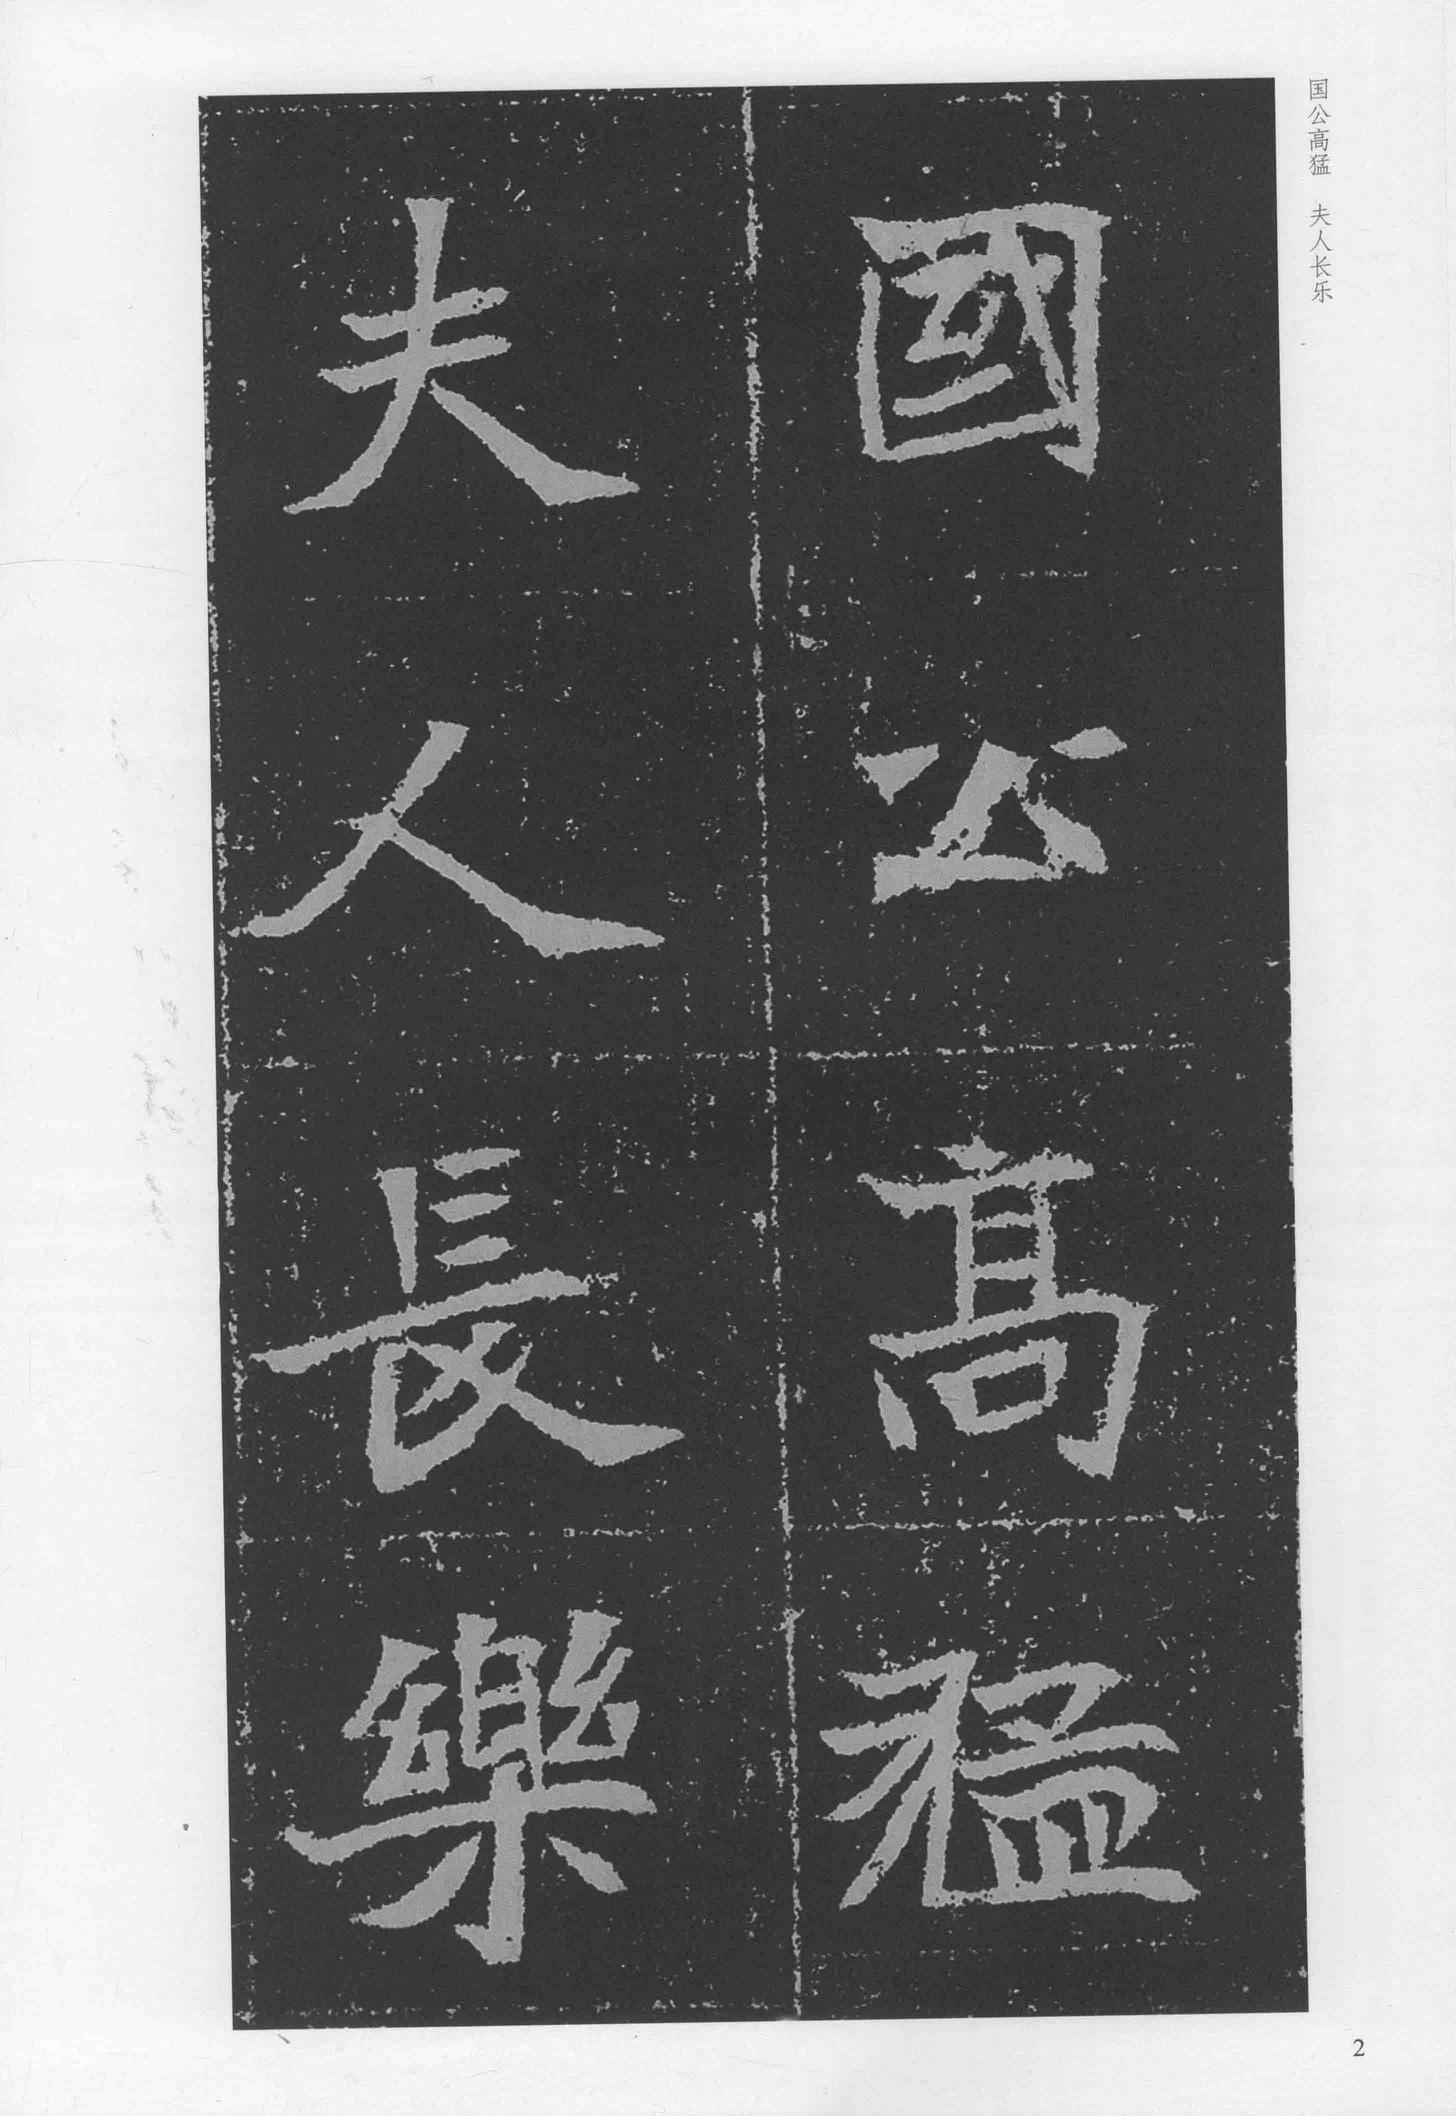 国公高猛　夫人长乐
國公高猛
夫人長樂
2